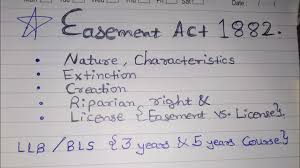 Easement Act 1882.
• Nature, Characteristics
• Extinction
• Creation
• Riparian, right &
• License {Easement vs. License},
LLB / BLS {3 years & 5 years Course},